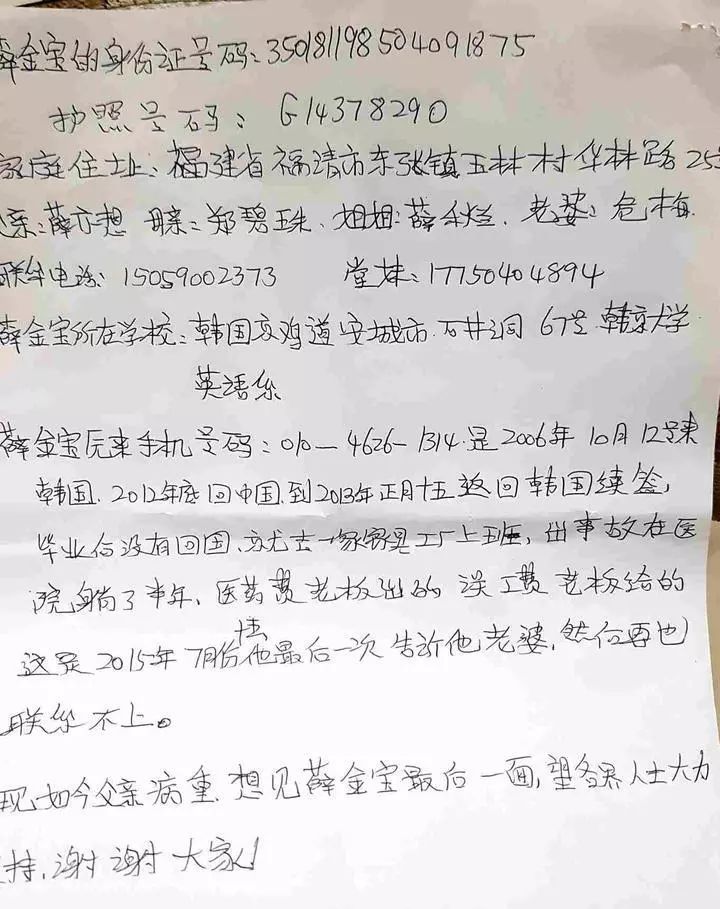 薛金宝的身份证号码:350181198504091875
护照号码: G14378290
家庭住址:福建省福清市东张镇玉林村华林路25
父亲:薛亦想 母亲:郑碧珠. 姐姐:薛 . 老婆:危梅
联系电话:15059002373 堂妹:17750404894
薛金宝所在学校:韩国京鸡道安城市.石井洞 67号 韩京大学
英语系
薛金宝原来手机号码:010-4626-1314.是2006年10月12号来
韩国.2012年底回中国.到2013年正月十五返回韩国续签,
毕业后没有回国. 去一家 工厂上班,出事故在医
院躺了半年.医药费老板出的 误工费老板给的
这是2015年7月份他最后一次告诉他老婆.然后再也
联系不上。
现如今父亲病重.想见薛金宝最后一面,望各界人士大力
支持.谢谢大家!